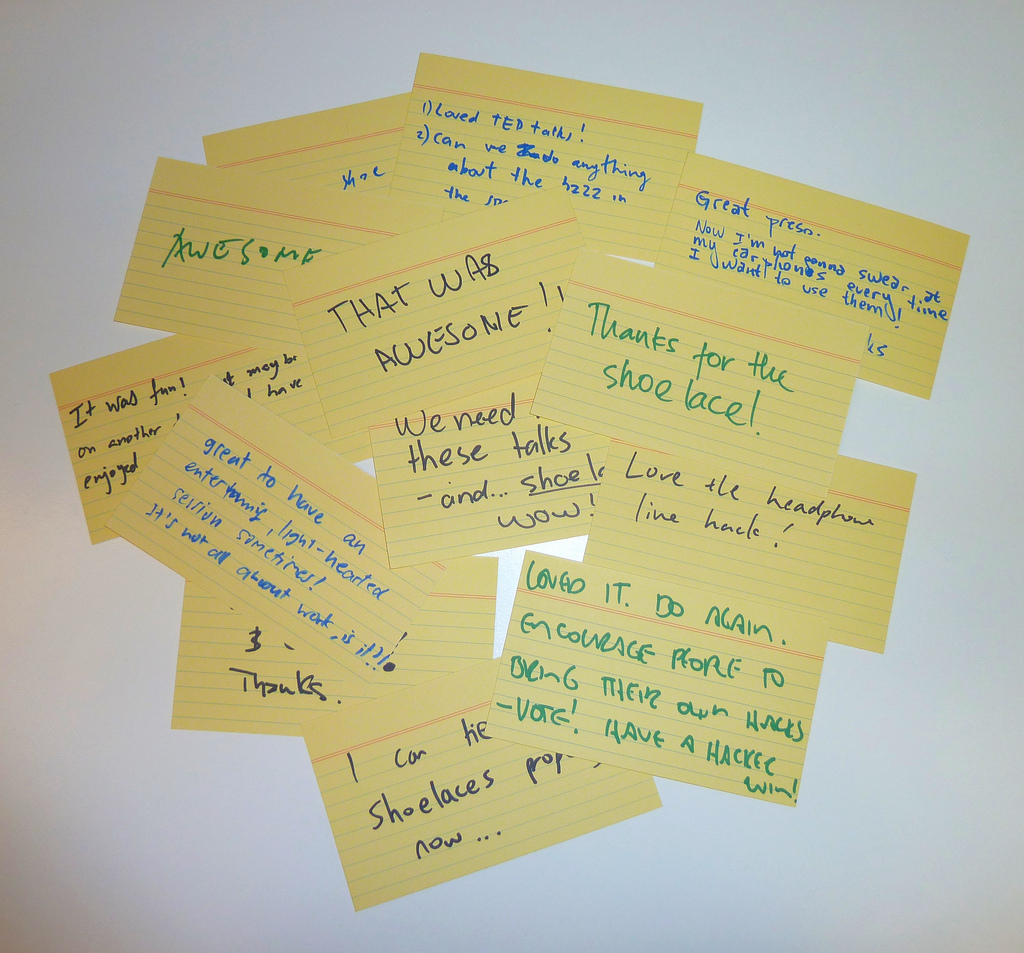 1) Loved TED talks!
2) Can we do anything
about the bzzz in
the
shoe
AWESOME
THAT WAS
AWESOME!!
Great preso.
Now I'm not gonna swear at
my earphones every time
I want to use them!
Thanks for the
shoelace!
It was fun! it may be
on another I have
enjoyed
great to have an
entertaining, light-hearted
session sometimes!
It's not all about work, is it?!!
We need
these talks
- and... shoel
wow!
Love the headphone
line hack!
LOVED IT. DO AGAIN.
ENCOURAGE PEOPLE TO
BRING THEIR OWN HACKS
- VOTE! HAVE A HACKER
WIN!
Thanks.
I can tie
shoelaces prop
now...